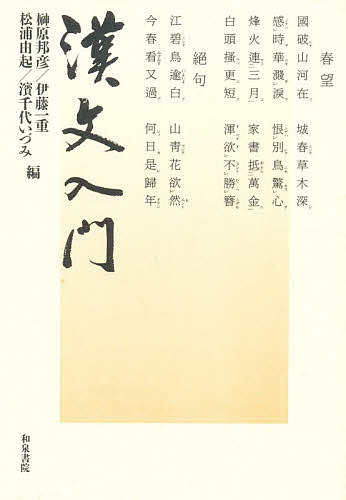 春望
國破山河在　城春草木深
感時華濺涙　恨別鳥驚心
烽火連三月　家書抵萬金
白頭搔更短　渾欲不勝簪
絶句
江碧鳥逾白　山青花欲然
今春看又過　何日是歸年
漢文入門
榊原邦彦／伊藤一重
松浦由起／濱千代いづみ　編
和泉書院